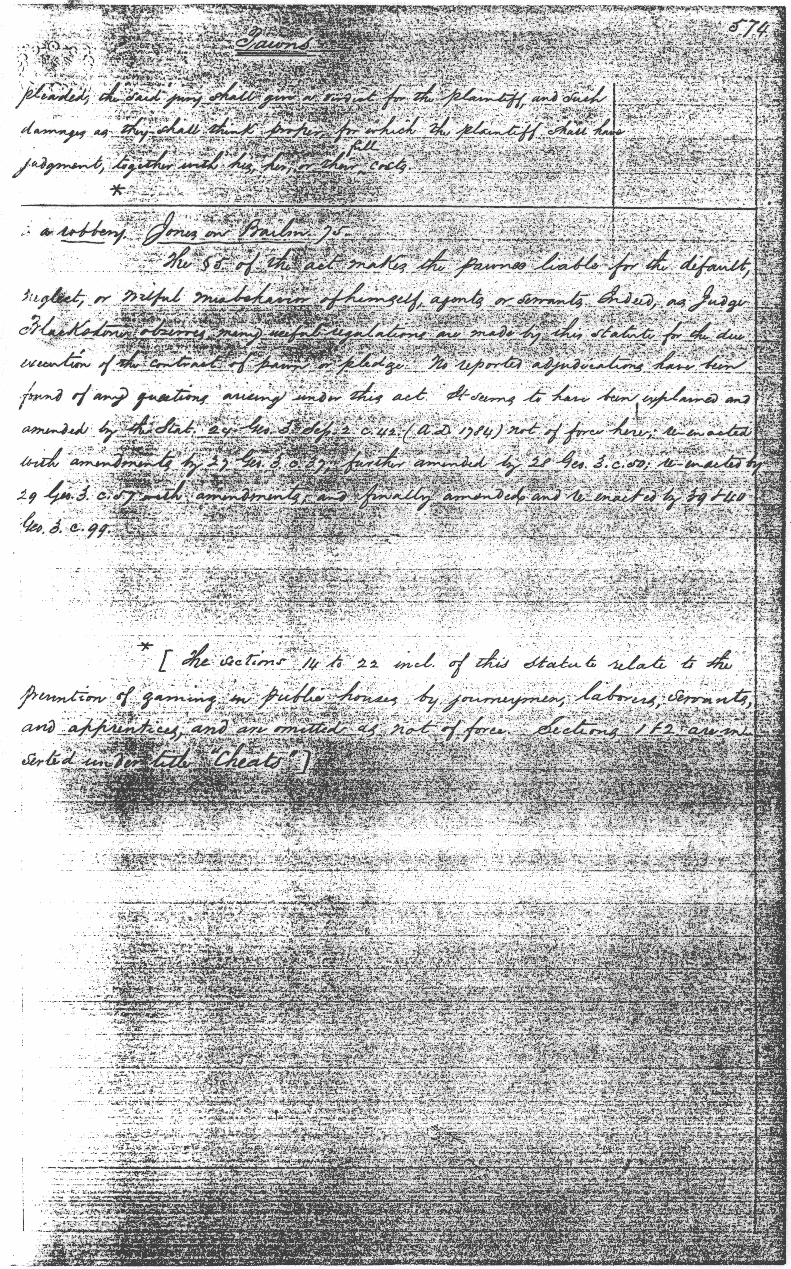 574
Pawns
pleaded, the said jury shall give a verdict for the plaintiff, and such
damages as they shall think proper, for which the plaintiff shall have
full
judgment, together with his, her, or their costs.
*
a robbery. Jones on Bailm. 75.
The §5 of the act makes the pawnee liable for the default,
neglect, or wilful misbehavior of himself, agents or servants. Indeed, as Judge
Blackstone observes, many useful regulations are made by this statute for the due
execution of the contract of pawn or pledge. No reported adjudications have been
found of any questions arising under this act. It seems to have been explained and
amended by the Stat. 24 Geo. 3. Sep. 2. c. 42. (A.D. 1784) not of force here; re-enacted
with amendments by 27 Geo. 3. c. 37; further amended by 28 Geo. 3. c. 50; re-enacted by
29 Geo. 3. c. 57 with amendments, and finally amended and re-enacted by 39 & 40
Geo. 3. c. 99.
* [ The sections 14 to 22 incl. of this statute relate to the
prevention of gaming in public houses by journeymen, laborers, servants,
and apprentices, and are omitted as not of force. Sections 1 & 2 are in
serted under title "Cheats"]